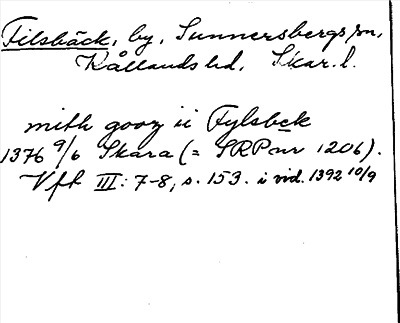 Filsbäck, by, Sunnersbergs sn,
Kållands hd, Skar. l.
mith gooz ii Fylsbek
1376 9/6 Skara (= SRP nr 1206).
Vft III: 7-8, s. 153. i vid. 1392 10/9